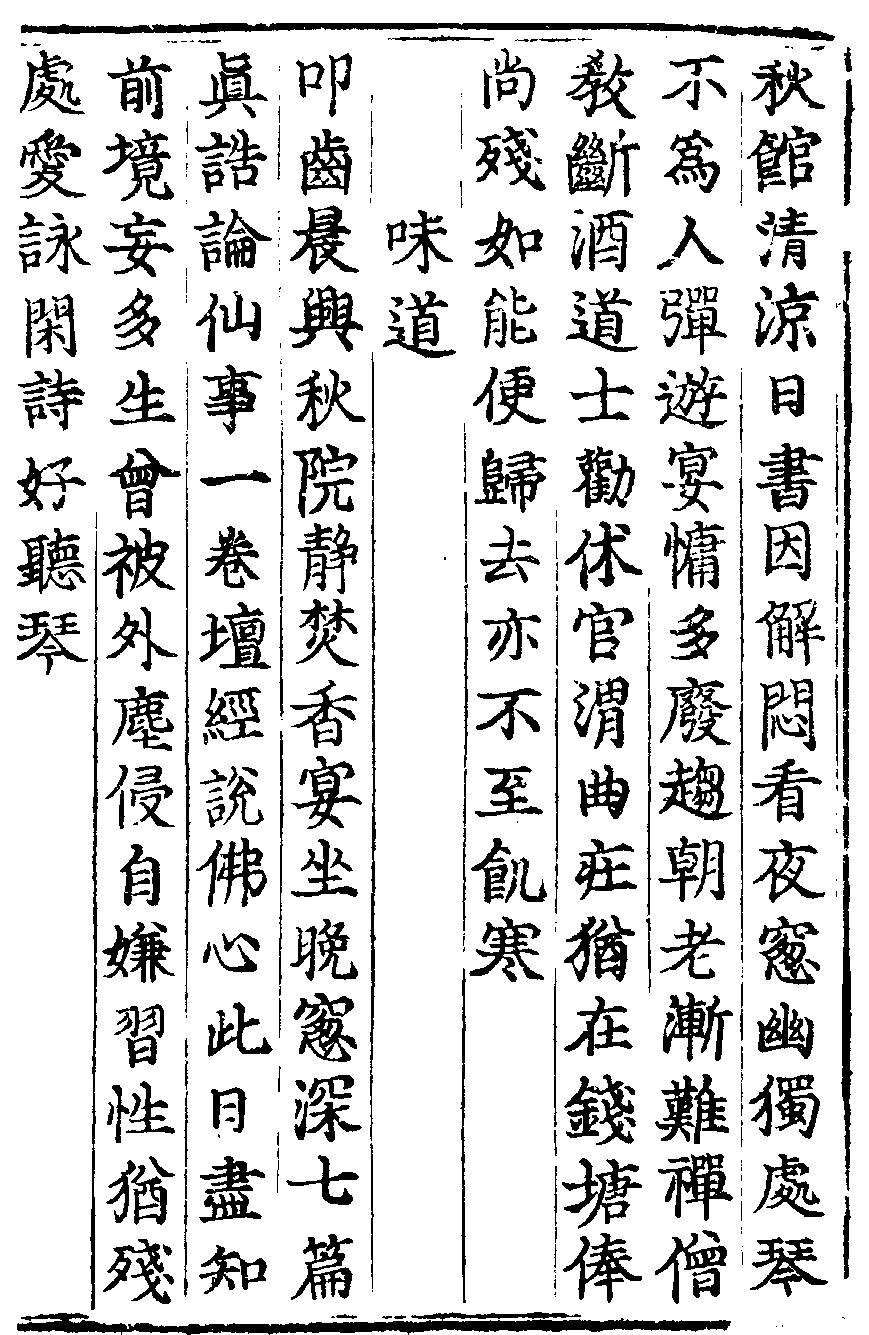 秋館清涼日書因解悶看夜窻幽獨處琴
不爲人彈遊宴慵多廢趨朝老漸難禪僧
教斷酒道士勸休官渭曲莊猶在錢塘俸
尚殘如能便歸去亦不至飢寒
味道
叩齒晨興秋院靜焚香宴坐晚窻深七篇
眞誥論仙事一卷壇經說佛心此日盡知
前境妄多生曾被外塵侵自嫌習性猶殘
處愛詠閑詩好聽琴